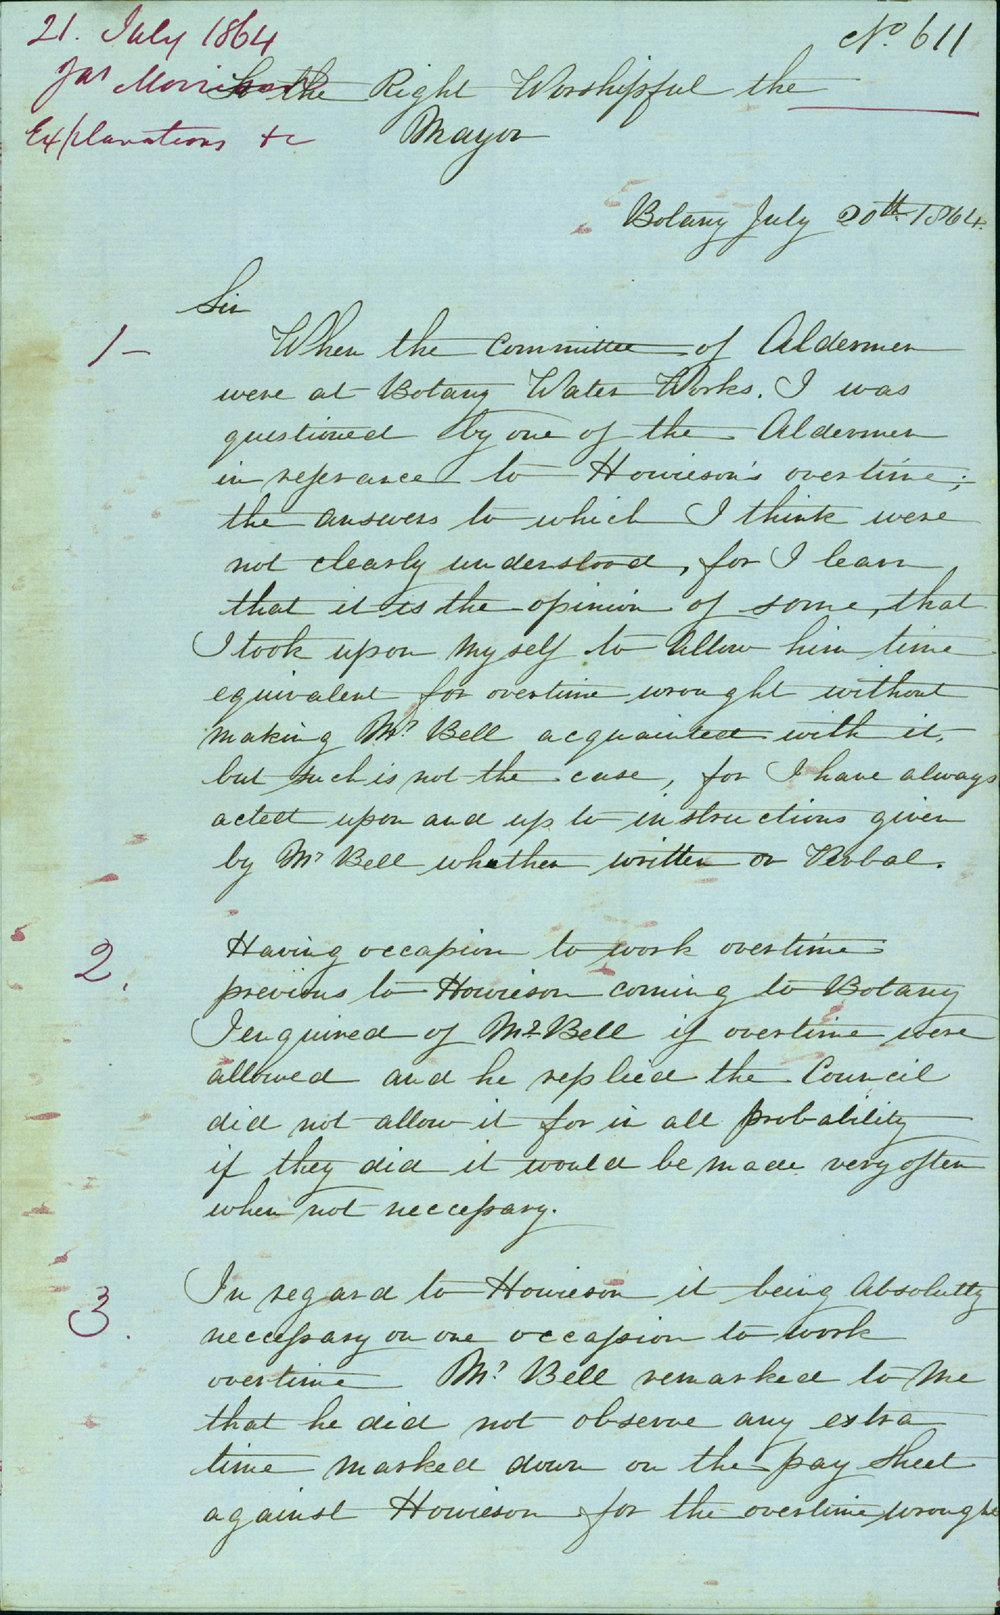 21. July 1864
No. 611
Jas Morrison
To the Right Worshipful the
Explanations &c
Mayor
Botany July 20th 1864.
Sir
1 -
When the committee of Aldermen
were at Botany Water Works. I was
questioned by one of the Aldermen
in referance to Howieson's overtime;
the answers to which I think were
not clearly understood, for I learn
that it is the opinion of some, that
I took upon myself to allow him time
equivalent for overtime wrought without
making Mr Bell acquainted with it,
but such is not the case, for I have always
acted upon and up to instructions given
by Mr Bell whether written or Verbal.
2.
Having occasion to work overtime
previous to Howieson coming to Botany
I enquired of Mr Bell if overtime were
allowed and he replied the Council
did not allow it for in all probability
if they did it would be made very often
when not neccessary.
3.
In regard to Howieson it being Absolutly
neccessary on one occassion to work
overtime Mr Bell remarked to me
that he did not observe any extra
time marked down on the pay sheet
against Howieson for the overtime wrought